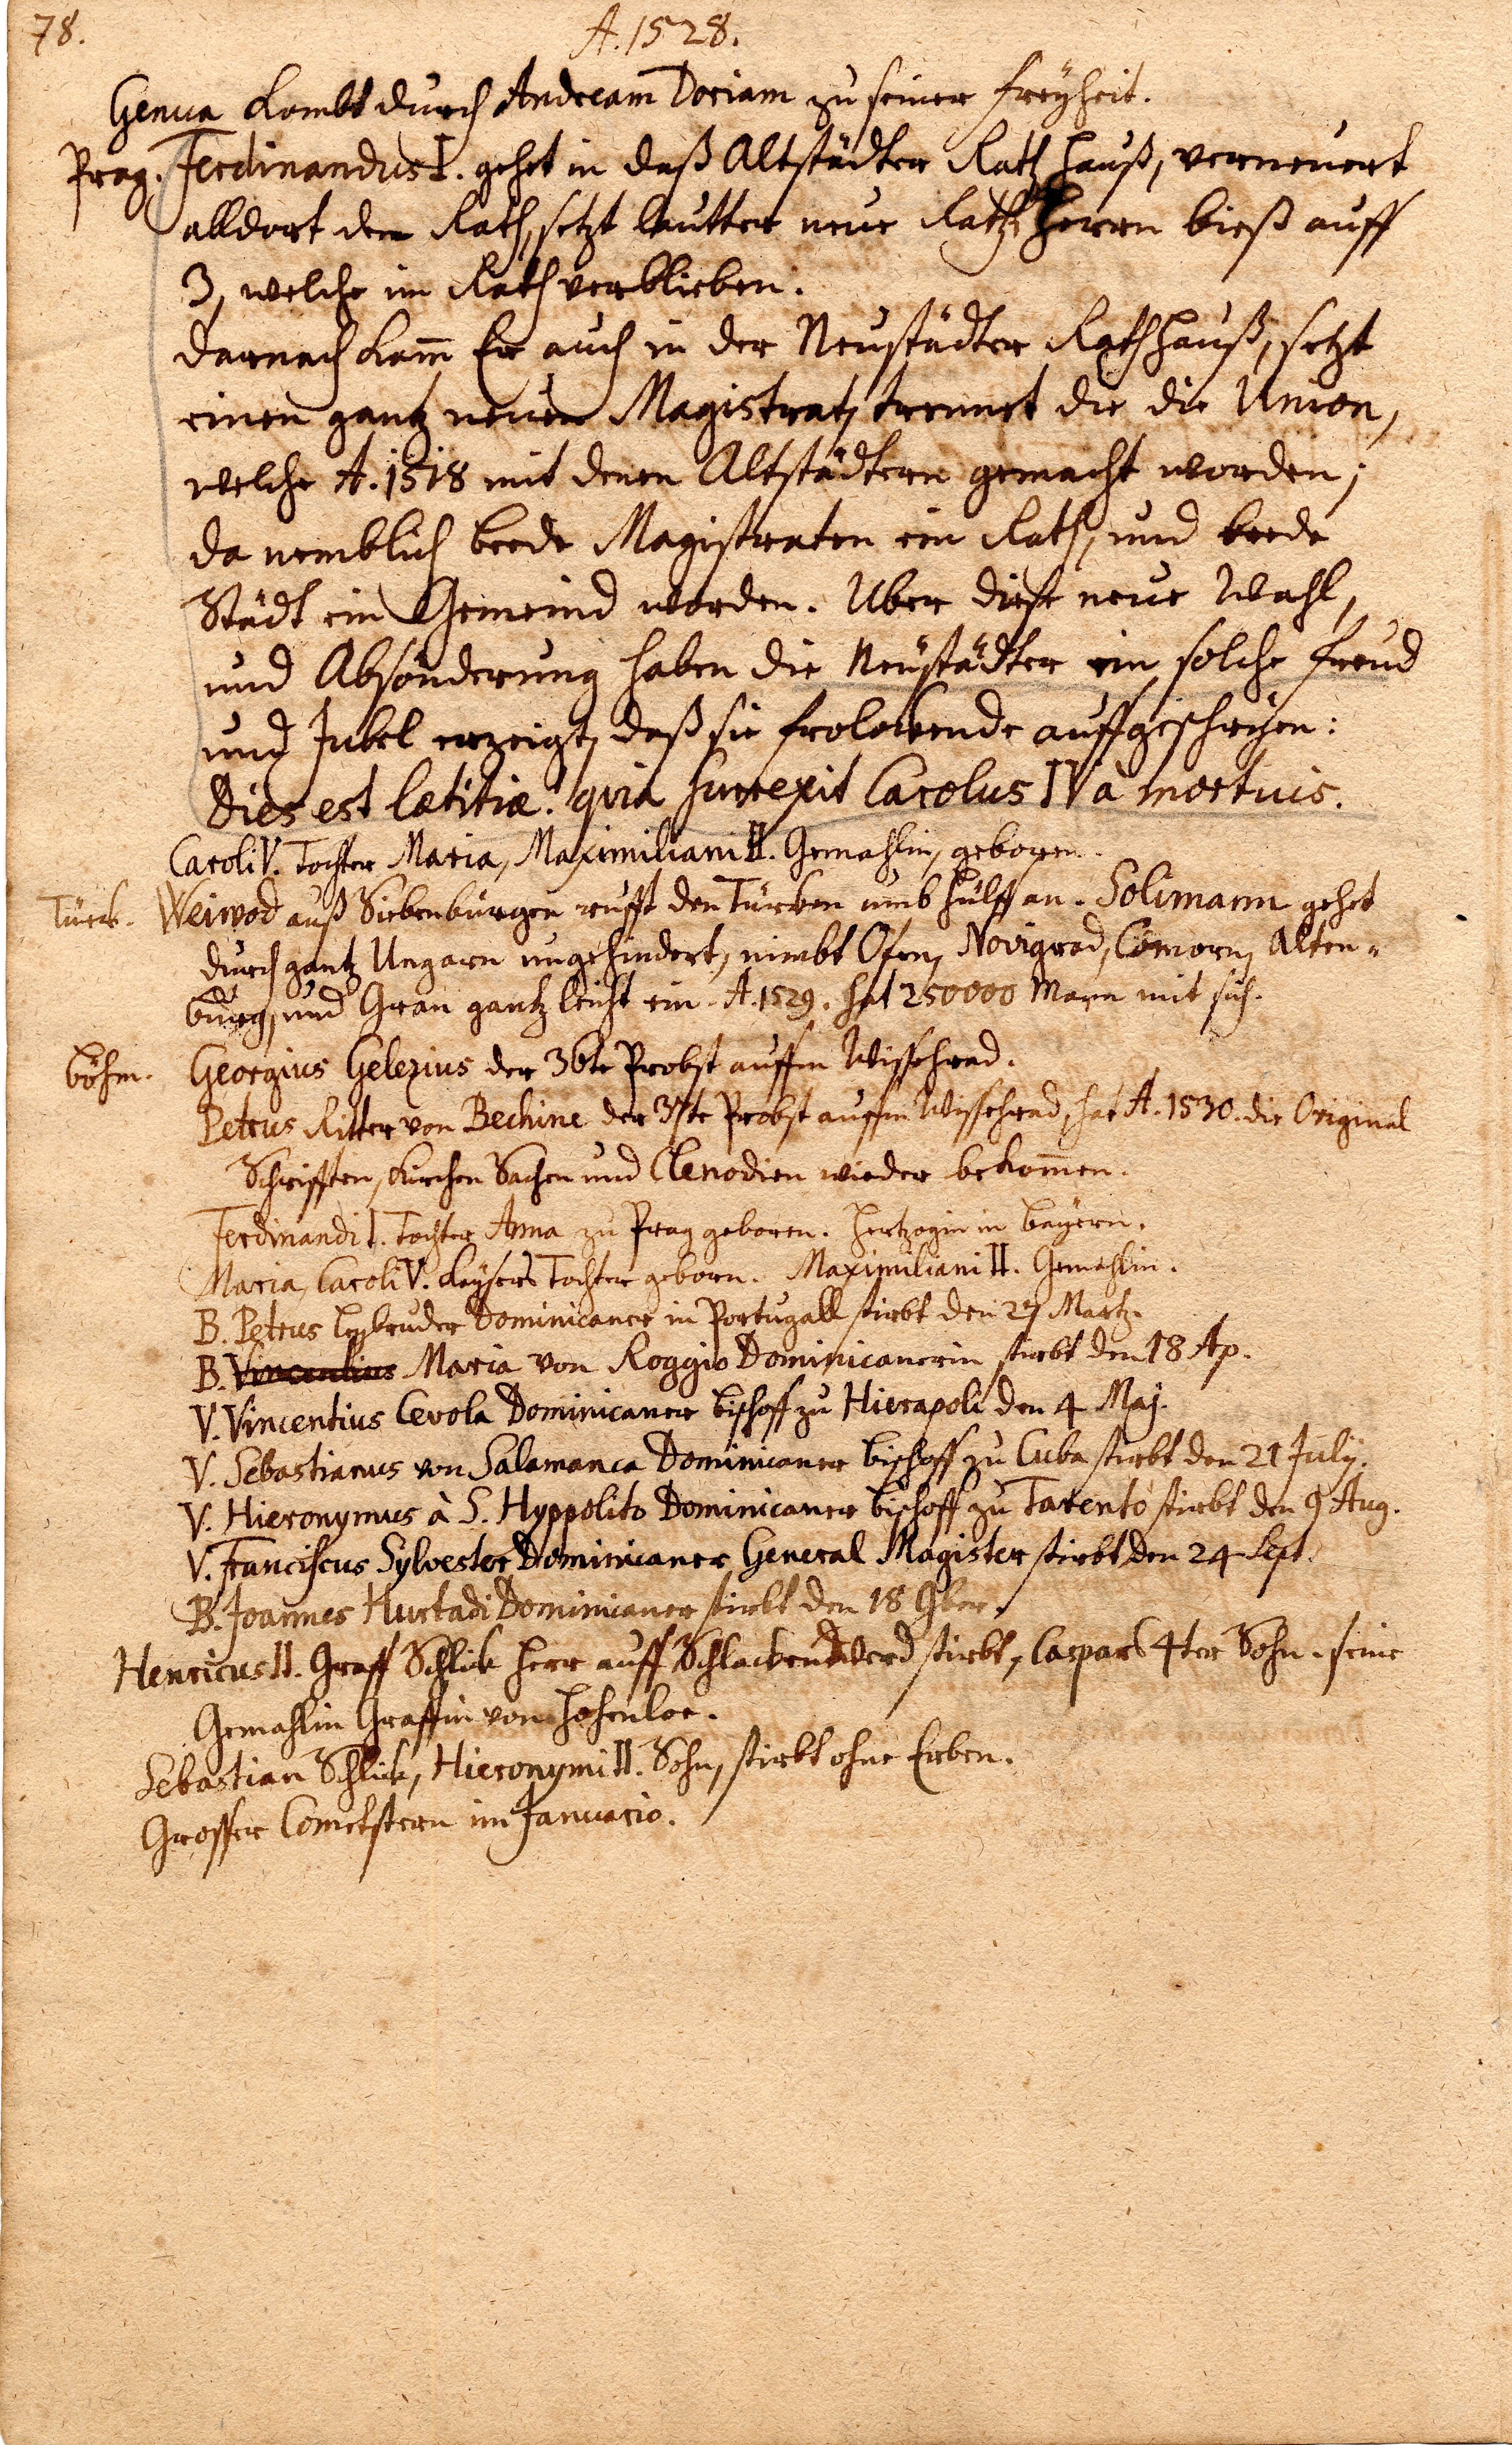 78.
A. 1528.
Genua kombt durch Andream Doriam zu seiner freÿheit.
Prag. Ferdinandus I. gehet in daß Altstädter Rath hauß, verneuert
alldort den Rath, setzt lautter neue Raths Herrn bieß auff
3, welche im Rath verblieben.
darnach kam̃ Er auch in der Neustädter Rathhauß, setzt
einen gantz neuen Magistrat, trennet die die Union,
welche A. 1518 mit denen Altstädtern gemacht worden;
da nemblich beede Magistraten ein Rath, und beede
Städt ein Gemeind worden. Uber diese neue Wahl,
und Absönderung haben die Neustädter ein solche freud
und Jubel erzeigt, daß sie frolokende auffgeschrÿen:
Dies est lætitiæ! quia surrexit Carolus IV à mortuis.
Caroli V. Tochter Maria, Maximiliani II. Gemahlin, geboren.
Türck. Weiwod auß Siebenburgen rufft den Türken umb hülff an. Solimann gehet
durch gantz Ungarn ungehindert, nimbt Ofen, Novigrad, Comorn, Alten-
burg, und Gran gantz leicht ein. A. 1529. hat 250000 Mann mit sich.
Böhm. Georgius Gelezius der 36te Probst auffm Wissehrad.
Petrus Ritter von Bechine der 37te Probst auffm Wissehrad, hat A. 1530. die Original
Schrifften, Kirchen Sachen und Clenodien wieder bekom̃en.
Ferdinandi I. Tochter Anna zu Prag geboren. Hertzogin in Bayern.
Maria, Caroli V. Kaÿsers Tochter geborn. Maximiliani II. Gemahlin.
B. Petrus Leybruder Dominicaner in Portugall stirbt den 27 Martz.
B. Vincentius Maria von Roggio Dominicanerin stirbt den 18 Ap.
V. Vincentius Cevola Dominicaner Bischoff zu Hierapoli den 4 Maj.
V. Sebastianus von Salamanca Dominicaner Bischoff zu Cuba stirbt den 21 July.
V. Hieronymus à S. Hyppolito Dominicaner Bischoff zu Tarento stirbt den 9 Aug.
V. Franciscus Sylvester Dominicaner General Magister stirbt den 24 Sept.
B. Joannes Hurtadi Dominicaner stirbt den 18 9ber.
Henricus II. Graff Schlik Herr auff Schlackenwerd stirbt, Caspars 4ter Sohn. seine
Gemahlin Graffin von Hohenloe.
Sebastian Schlik, Hieronymi II. Sohn, stirbt ohne Erben.
Grosser Cometstern im Januario.